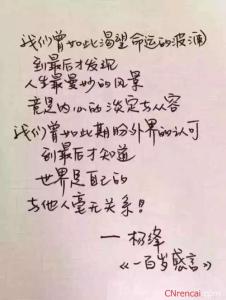 我们曾如此渴望命运的波澜
到最后才发现
人生最曼妙的风景
竟是内心的淡定与从容
我们曾如此期盼外界的认可
到最后才知道
世界是自己的
与他人毫无关系!
—杨绛
《一百岁感言》
CNrencai.com